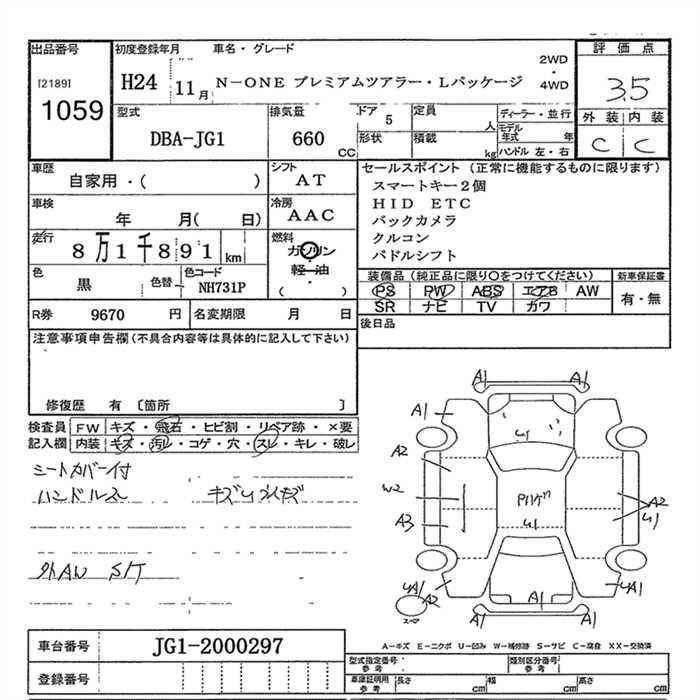 出品番号
[2189]
1059
初度登録年月 車名・グレード
H24 11月 N-ONE プレミアムツアラー・Lパッケージ
2WD
・
4WD
評価点
3.5
外装 内装
C C
型式
DBA-JG1
排気量
660 CC
ドア 5
形状
定員 人
積載 kg
ディーラー・並行
モデル年式 年
ハンドル 左・右
車歴
自家用・( )
シフト
AT
車検
年 月( 日)
冷房
AAC
走行
8万1千891 km
燃料
ガソリン
・
軽油
・
( )
色
黒
色替
色コード
NH731P
セールスポイント (正常に機能するものに限ります)
スマートキー2個
HID ETC
バックカメラ
クルコン
パドルシフト
装備品 (純正品に限り○をつけてください) 新車保証書
PS PW ABS エアB AW
SR ナビ TV カワ
有・無
R券 9670 円 名変期限 月 日
後日品
注意事項申告欄 (不具合内容等は具体的に記入して下さい)
修復歴 有 〔箇所 〕
検査員 FW キズ・飛石・ヒビ割・リペア跡・×要
記入欄 内装 キズ・汚レ・コゲ・穴・スレ・キレ・破レ
シートカバー付
ハンドルスレ
外AW S/T
A1 A1
A1
A2
W2
A3
A2
A1
A1
A2
A1
スペア
A-キズ E-エクボ U-凹み W-補修跡 S-サビ C-腐食 XX-交換済
車台番号 JG1-2000297
登録番号
型式指定番号 参考 類別区分番号 参考
車庫証明用 参考 長さ cm 幅 cm 高さ cm